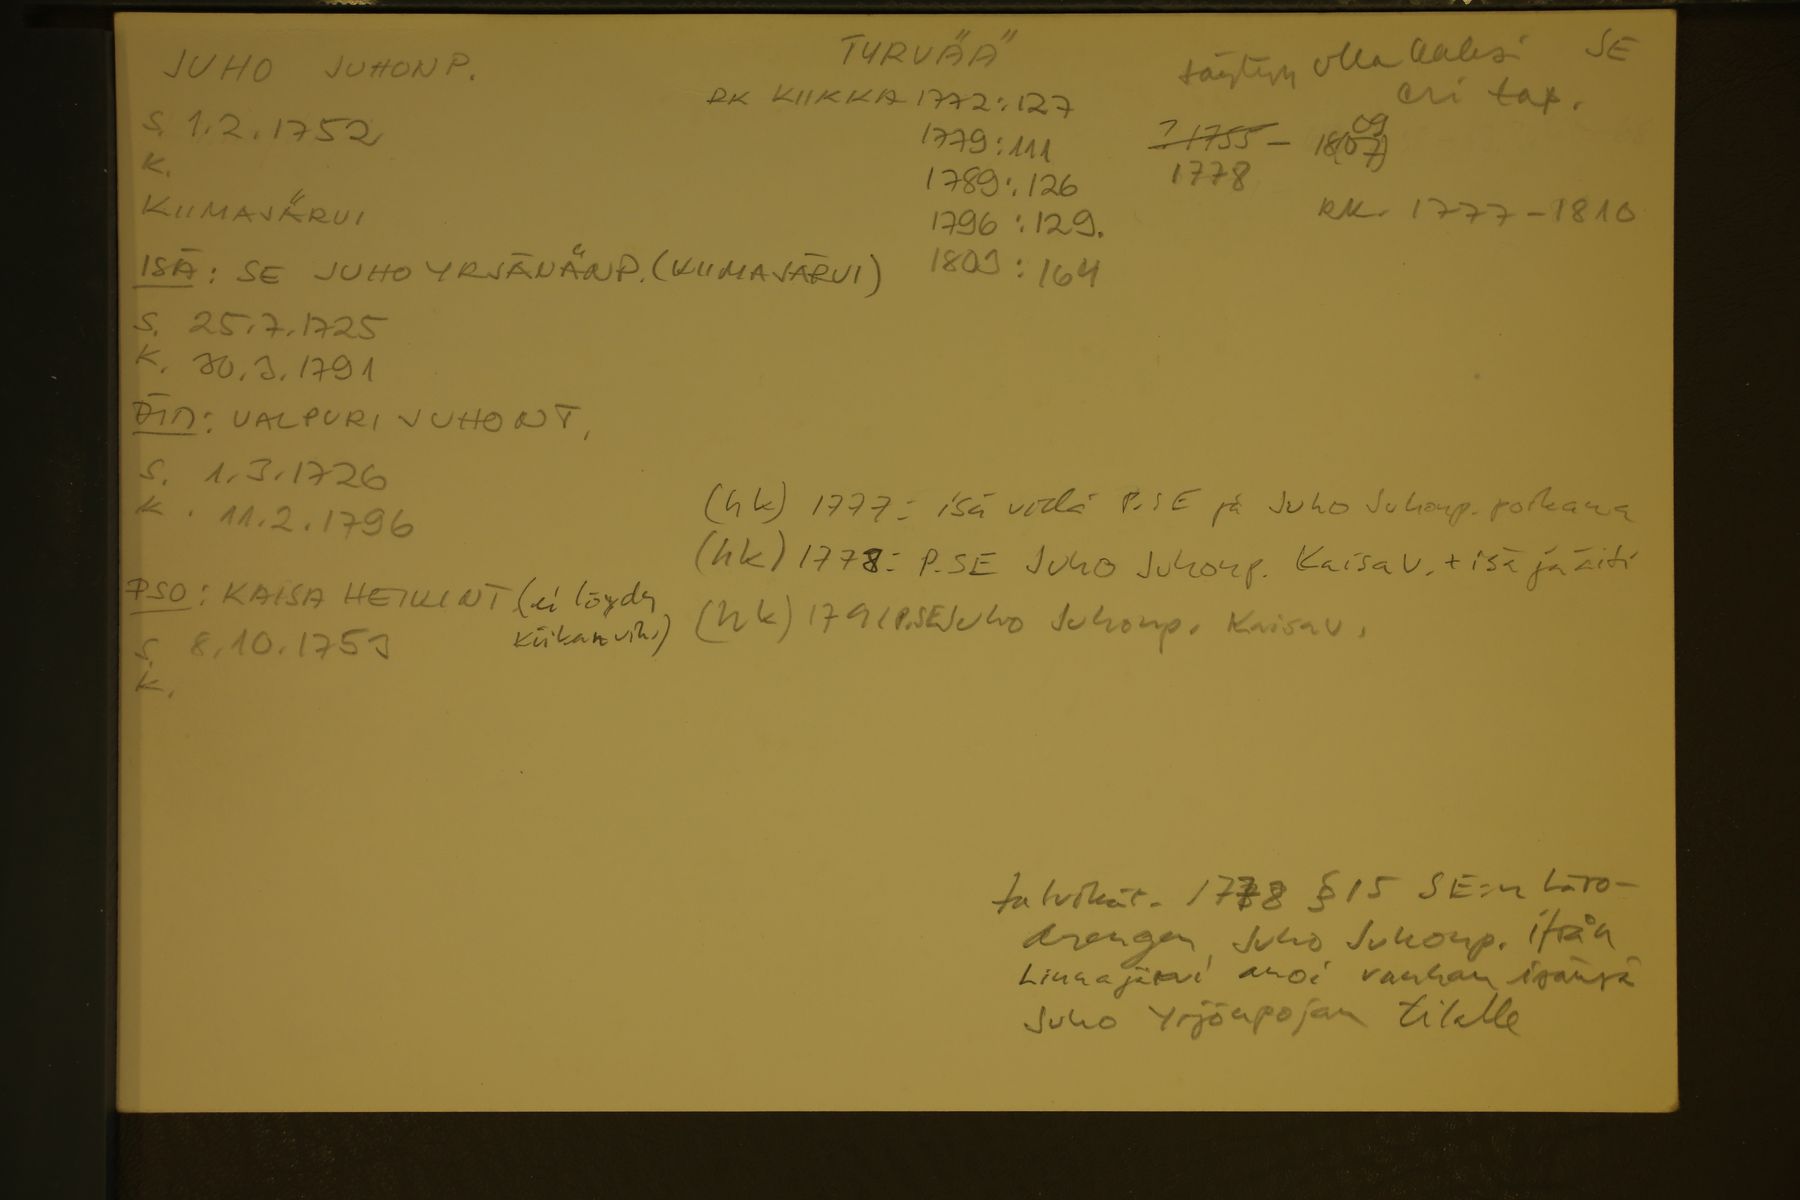 JUHO JUHONP.
TYRVÄÄ
täytyy olla kaksi SE
eri tap.
S. 1.2.1752
K.
KIIMAJÄRVI
RK KIIKKA 1772:127
1779:111
1789:126
1796:129.
1803:164
? 1755 – 18(07) 09
1778
RK. 1777–1810
ISÄ: SE JUHO YRJÄNÄNP. (KIIMAJÄRVI)
S. 25.7.1725
K. 30.3.1791
ÄITI: VALPURI JUHONT.
S. 1.3.1726
K. 11.2.1796
PSO: KAISA HEIKINT (ei löydy
Kiikan vih.)
S. 8.10.1753
K.
(hk) 1777: isä vielä P.SE ja Juho Juhonp. poikana
(hk) 1778: P.SE Juho Juhonp. Kaisa v. + isä ja äiti
(hk) 1791 P.SE Juho Juhonp. Kaisa v.
talvikär. 1778 § 15 SE:n Läro-
drengen Juho Juhonp. ifrån
Liinajärvi anoi vanhan isänsä
Juho Yrjönpojan tilalle